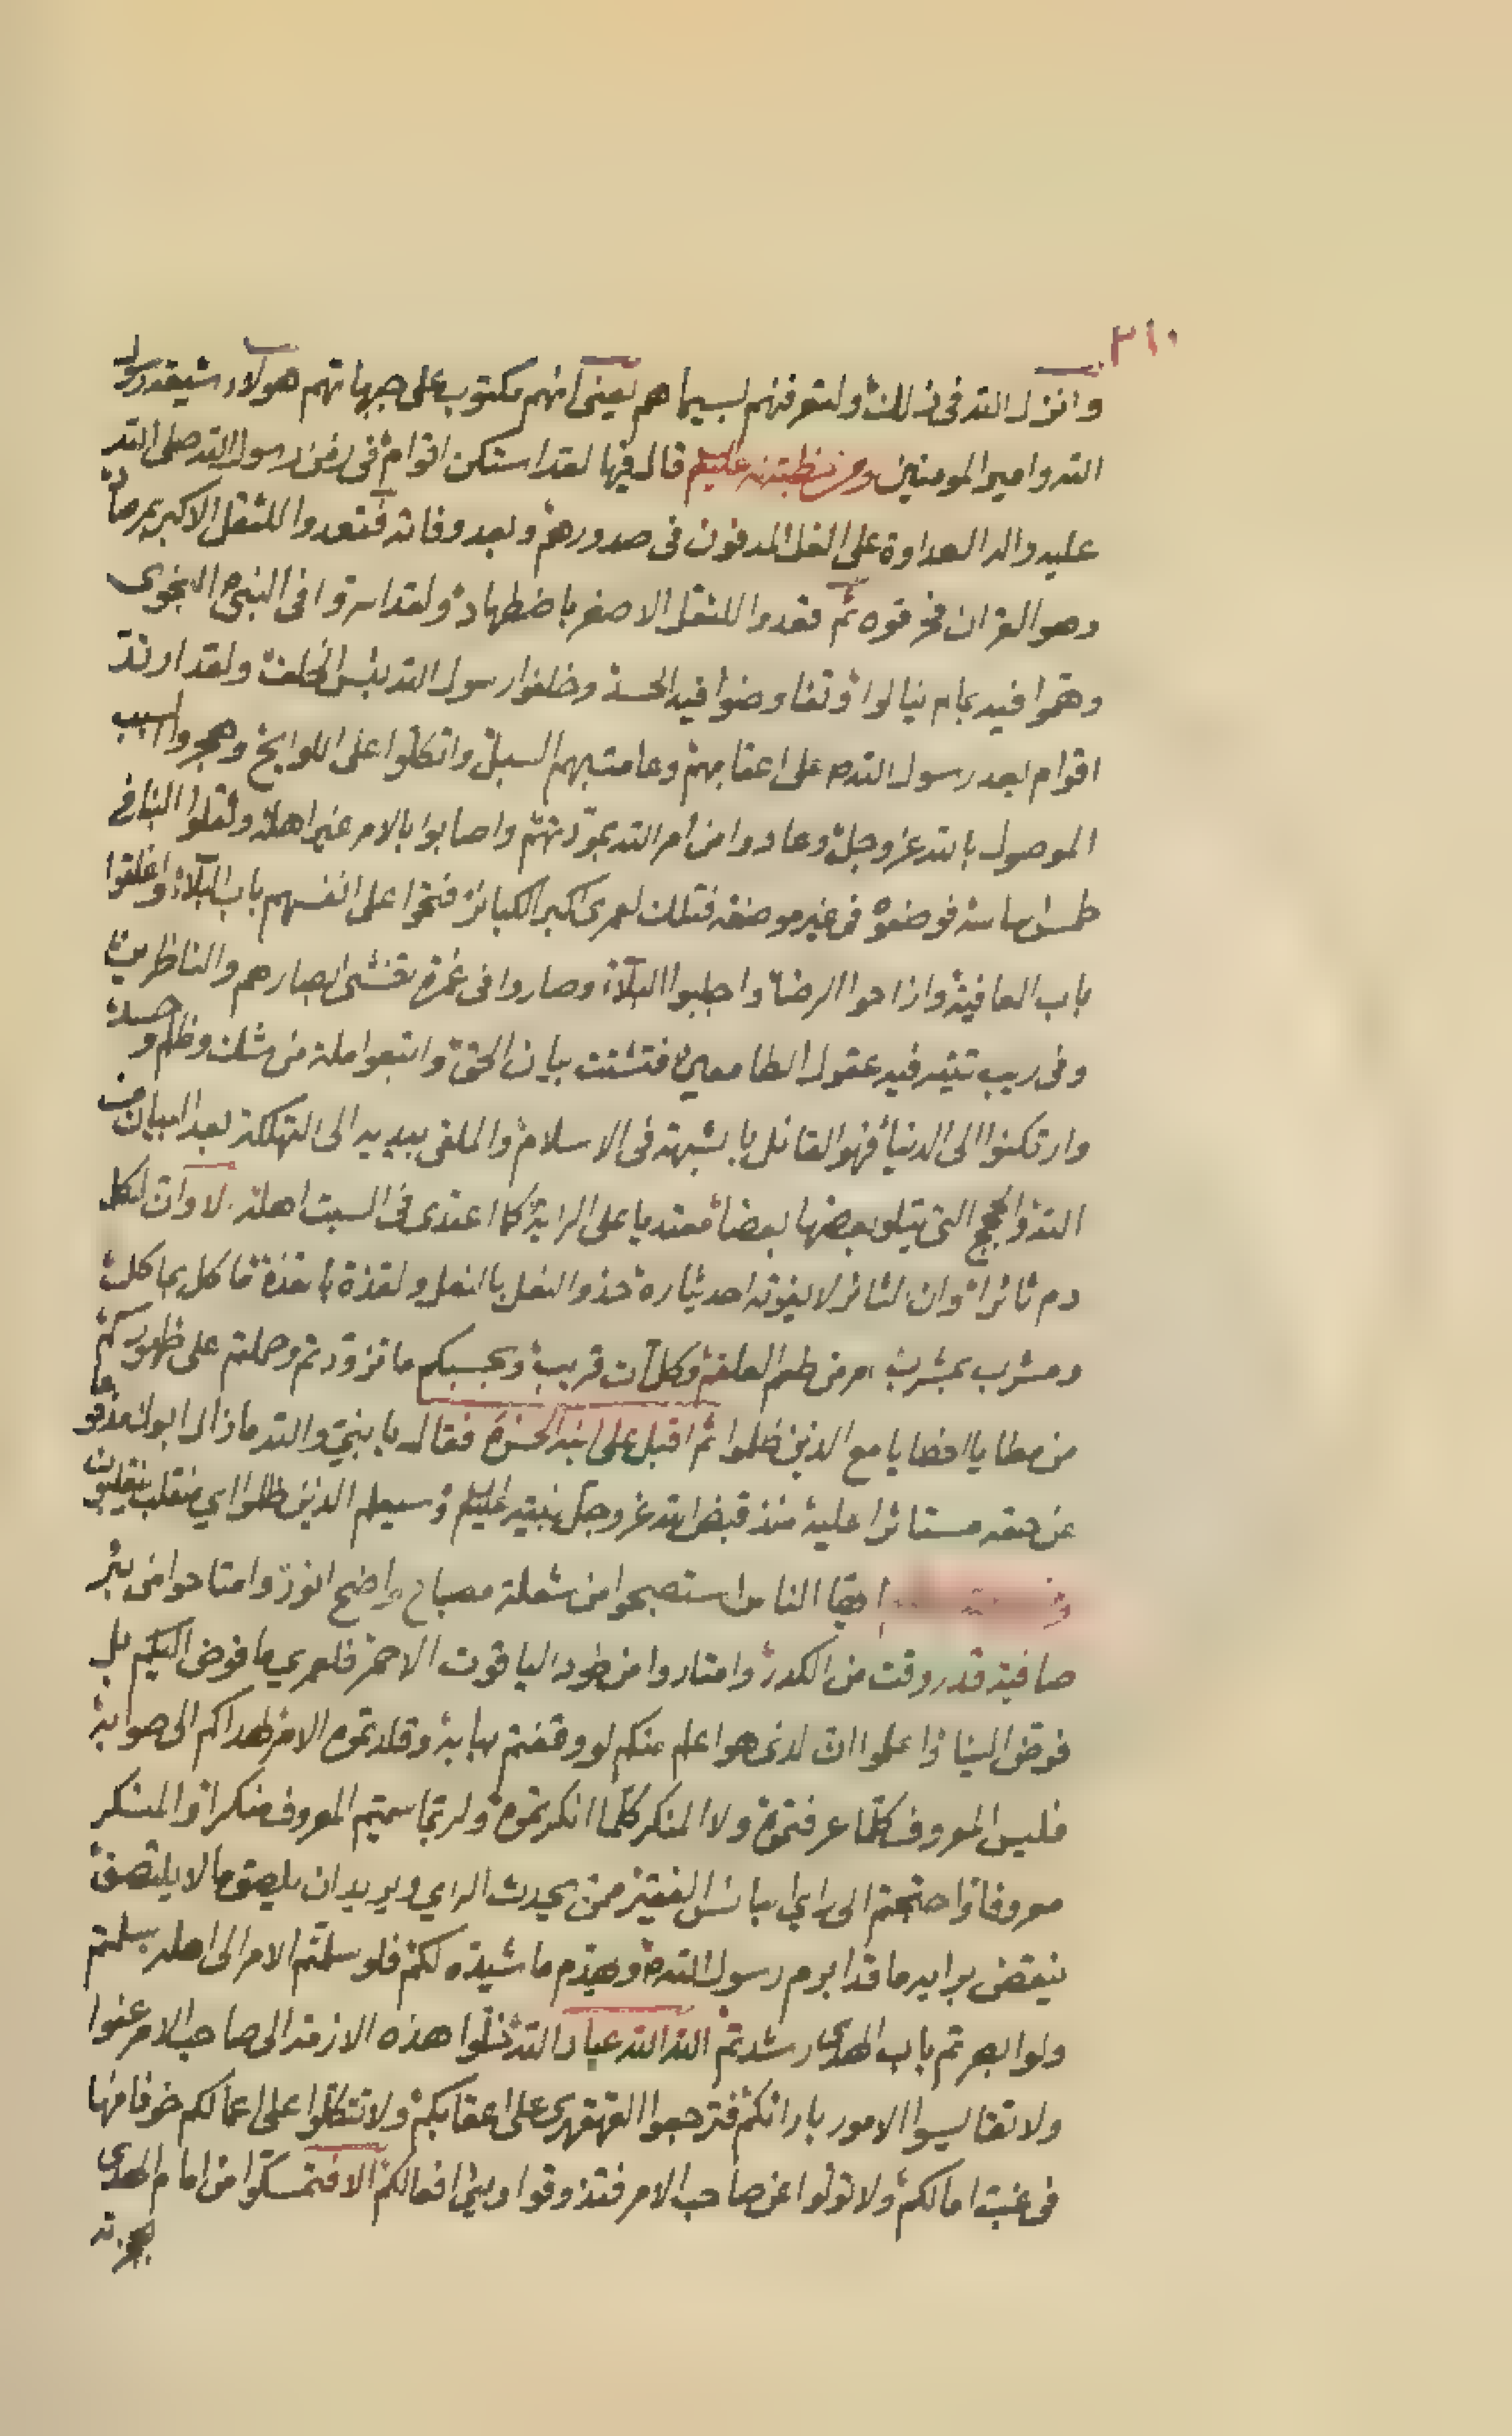 ٣١٠
وانزل الله في ذلك ولتعرفنهم بسيماهم يعني انهم مكتوب على جبهاتهم هولآء شيعة رسول
الله وامير المومنين ومن خطبته عليه السلم قال فيها لقد استكن اقوام في زمن رسول الله صلى الله
عليه واله العداوة على الغل المدفون في صدورهم وبعد وفاته فقعدوا للثقل الاكبر بمرصاد
وهو القران فخرقوه ثم قعدوا للثقل الاصغر باضطهاد ولقد اسروا في النبي النجوى
وهموا فيه بما لم ينالوا وتفاوضوا فيه الحسد وخلفوا رسول الله بئس الخلف ولقد ارتد
اقوام بعد رسول الله ص على اعقابهم وعامتهم السبل واتكلوا على اللوايج وهجروا السبب
الموصول بالله عز وجل وعادوا من امر الله بمودتهم واصابوا بالامر غير اهله ونقلوا البنا في
طمس اساسه فوضعوه في غير موضعه فتلك لعمري اكبر الكبائر فتحوا على انفسهم باب البلآء واغلقوا
باب العافية وازاحوا الرضا واجلبوا البلآء وصاروا في غمرة تغشى ابصارهم والناظرين
وفي ريب تتيه فيه عقول الطامعين فتشتت بيان الحق واتبعوا ملة من شك وظلم وحسد
واركنوا الى الدنيا فهو القائل بالشبهة في الاسلام والملقى بيديه الى التهلكة بعد البيان من
الله والحجج التي يتلو بعضها بعضا معتديا على الراية كما اعتدى في السبت اهله الا وان لكل
دم ثائرا وان الثائر لا يفوته احد بثاره حذو النعل بالنعل والقذة بالقذة ماكل بماكل
ومشرب بمشرب امر من طعم العلقم وكل آت قريب وبحسبكم ما تزودتم وحملتم على ظهوركم
من مطايا الخطايا مع الذين ظلموا ثم اقبل على ابنه الحسن ع فقال يا بني والله ما زال ابوك مدفوعا
عن حقه مستاثرا عليه منذ قبض الله عز وجل نبيه عليه السلم وسيعلم الذين ظلموا اي منقلب ينقلبون
ايها الناس استصبحوا من شعلة مصباح واضح انور وامتاحوا من بئر
صافية قد روقت من الكدر وامتاروا من طود الياقوت الاحمر فلعمري ما فوض اليكم بل
فوض الينا واعلموا ان لذي هو اعلم منكم لو وقفتم ببابه وقلدتموه الامر لهداكم الى صوابه
فليس المعروف كلما عرفتموه ولا المنكر كلما انكرتموه ولربما سميتم المعروف منكرا والمنكر
معروفا واحتجتم الى راي البائس الفقير ممن يحدث الراي ويريد ان يلصق ما لا يلتصق
ينقض برايه ما قد ابرم رسول الله ص ويهدم ما شيده لكم فلو سلمتم الامر الى اهله سلمتم
ولو ابصرتم باب الهدى رشدتم الله الله عباد الله خلوا هذه الازمة الى صاحب الامر عنوا
ولا تقايسوا الامور بارائكم فترجعوا القهقرى على اعقابكم ولا تتكلوا على اعمالكم خوفا منها
في غب امالكم ولا تولوا عن صاحب الامر فتذوقوا وبئ افعالكم الا فتمسكوا من امام الهدى